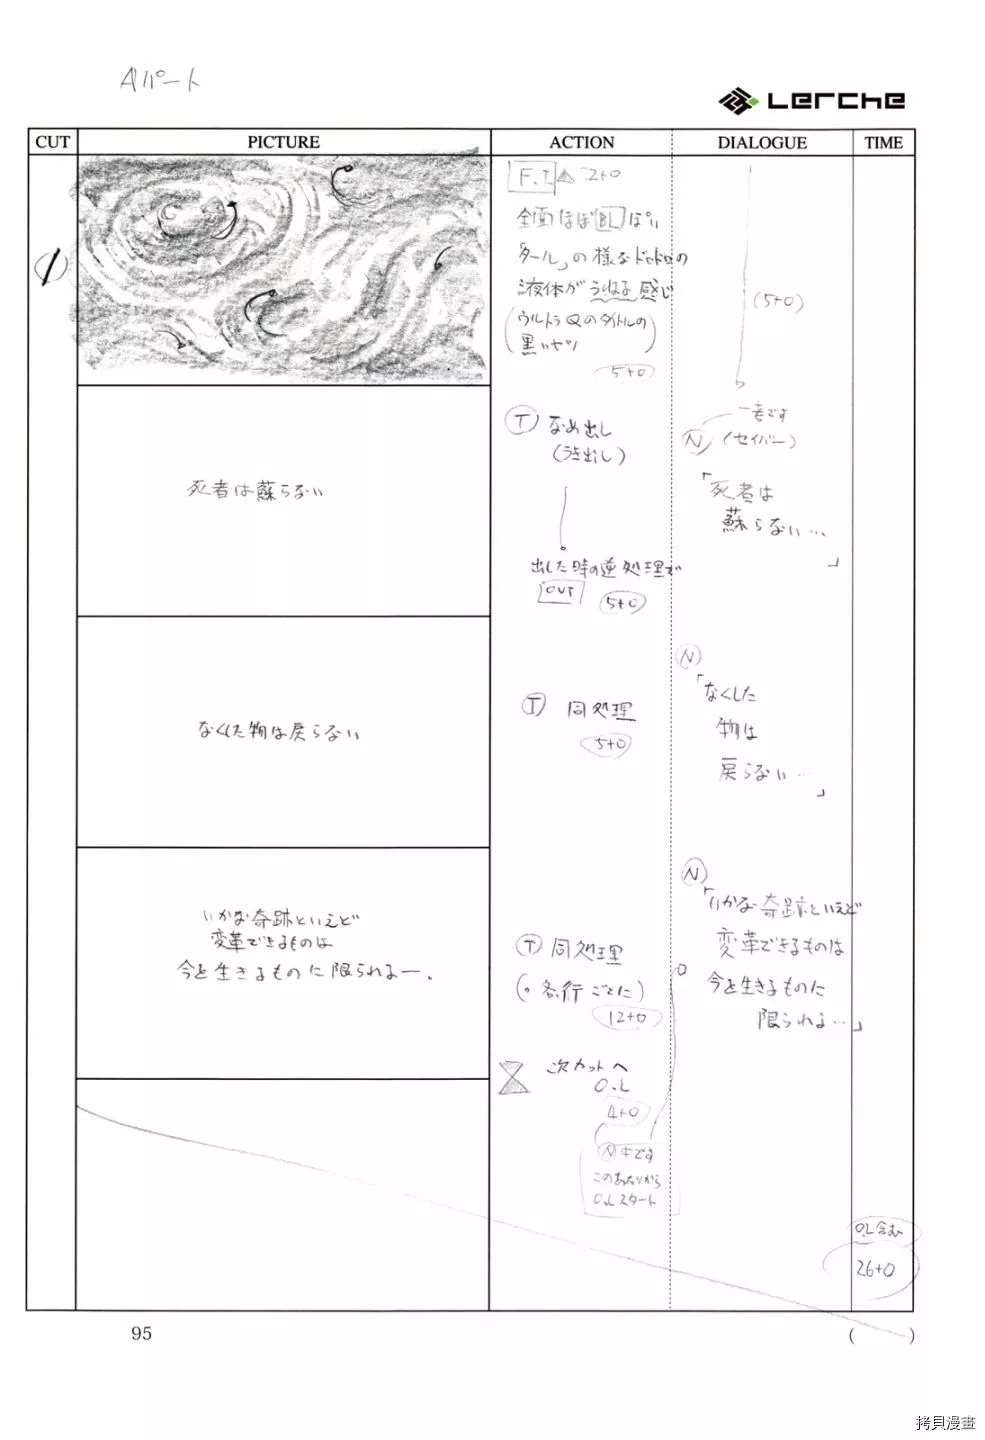 Aパート
Lerche
CUT
PICTURE
ACTION
DIALOGUE
TIME
1
F.I 2+0
全面ほぼBLっぽい
「タール」の様なドロドロの
液体がうねる感じ
(ウルトラQのタイトルの
黒いヤツ)
5+0
(5+0)
死者は蘇らない
T なめ出し
(うき出し)
出した時の逆処理で
OUT 5+0
N (セイバー)
「死者は
蘇らない…
」
なくした物は戻らない
T 同処理
5+0
N
「なくした
物は
戻らない…
」
いかな奇跡といえど
変革できるものは
今を生きるものに限られるー。
T 同処理
(。各行ごとに)
12+0
N
「いかな奇跡といえど
変革できるものは
今を生きるものに
限られる…」
次カットへ
O.L
4+0
N中です
このあたりから
O.Lスタート
O.L含む
26+0
95
( )
拷貝漫畫